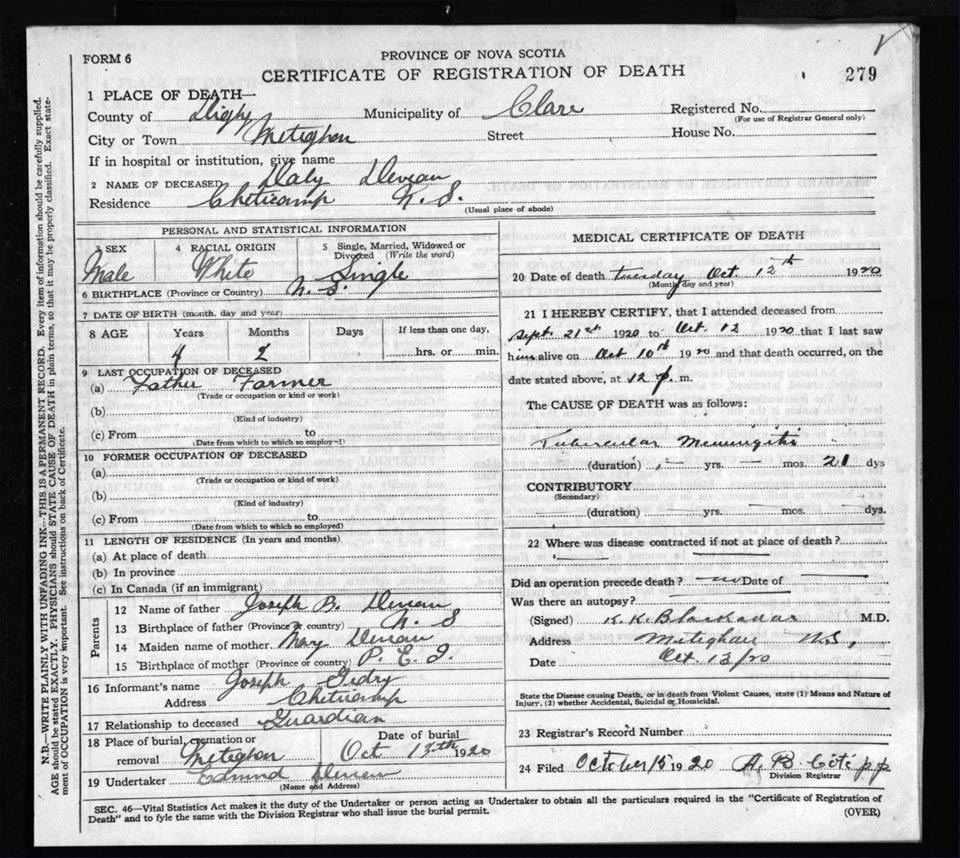 FORM 6
PROVINCE OF NOVA SCOTIA
CERTIFICATE OF REGISTRATION OF DEATH
279
1 PLACE OF DEATH—
County of Digby Municipality of Clare Registered No.
(For use of Registrar General only)
City or Town Meteghan Street House No.
If in hospital or institution, give name
2 NAME OF DECEASED Deveau
Residence Cheticamp N. S.
(Usual place of abode)
PERSONAL AND STATISTICAL INFORMATION
3 SEX 4 RACIAL ORIGIN 5 Single, Married, Widowed or Divorced (Write the word)
Male White Single
6 BIRTHPLACE (Province or Country) N. S.
7 DATE OF BIRTH (month, day and year)
8 AGE Years Months Days If less than one day,
4 2 hrs. or min.
9 LAST OCCUPATION OF DECEASED
(a) Father Farmer
(Trade or occupation or kind or work)
(b)
(Kind of industry)
(c) From to
(Date from which to which so employ-1)
10 FORMER OCCUPATION OF DECEASED
(a)
(Trade or occupation or kind of work)
(b)
(Kind of industry)
(c) From to
(Date from which to which so employed)
11 LENGTH OF RESIDENCE (In years and months)
(a) At place of death
(b) In province
(c) In Canada (if an immigrant)
Parents
12 Name of father Joseph B. Deveau
13 Birthplace of father (Province or country) N. S
14 Maiden name of mother Mary Deveau
15 Birthplace of mother (Province or country) P. E. I.
16 Informant's name Joseph Gedry
Address Cheticamp
17 Relationship to deceased Guardian
18 Place of burial, cremation or removal Meteghan Date of burial Oct 13th 1920
19 Undertaker Edmund Deveau
(Name and Address)
MEDICAL CERTIFICATE OF DEATH
20 Date of death tuesday Oct 12th 1920
(Month, day and year)
21 I HEREBY CERTIFY, that I attended deceased from
Sept. 21st 1920 to Oct 12 1920 that I last saw
him alive on Oct 10th 1920 and that death occurred, on the
date stated above, at 12 p. m.
The CAUSE OF DEATH was as follows:
Tubercular Meningitis
(duration) — yrs. — mos. 21 dys
CONTRIBUTORY
(Secondary)
(duration) — yrs. — mos. — dys.
22 Where was disease contracted if not at place of death?
Did an operation precede death? no Date of
Was there an autopsy?
(Signed) M.D.
Address Meteghan N.S,
Date Oct. 13/20
State the Disease causing Death, or in death from Violent Causes, state (1) Means and Nature of
Injury, (2) whether Accidental, Suicidal or Homicidal.
23 Registrar's Record Number
24 Filed October 15 1920 A. B. Côté p.p
Division Registrar
SEC. 46—Vital Statistics Act makes it the duty of the Undertaker or person acting as Undertaker to obtain all the particulars required in the "Certificate of Registration of
Death" and to fyle the same with the Division Registrar who shall issue the burial permit.
(OVER)
N.B.—WRITE PLAINLY WITH UNFADING INK—THIS IS A PERMANENT RECORD. Every item of information should be carefully supplied.
AGE should be stated EXACTLY. PHYSICIANS should STATE CAUSE OF DEATH in plain terms, so that it may be properly classified. Exact state-
ment of OCCUPATION is very important. See instructions on back of Certificate.